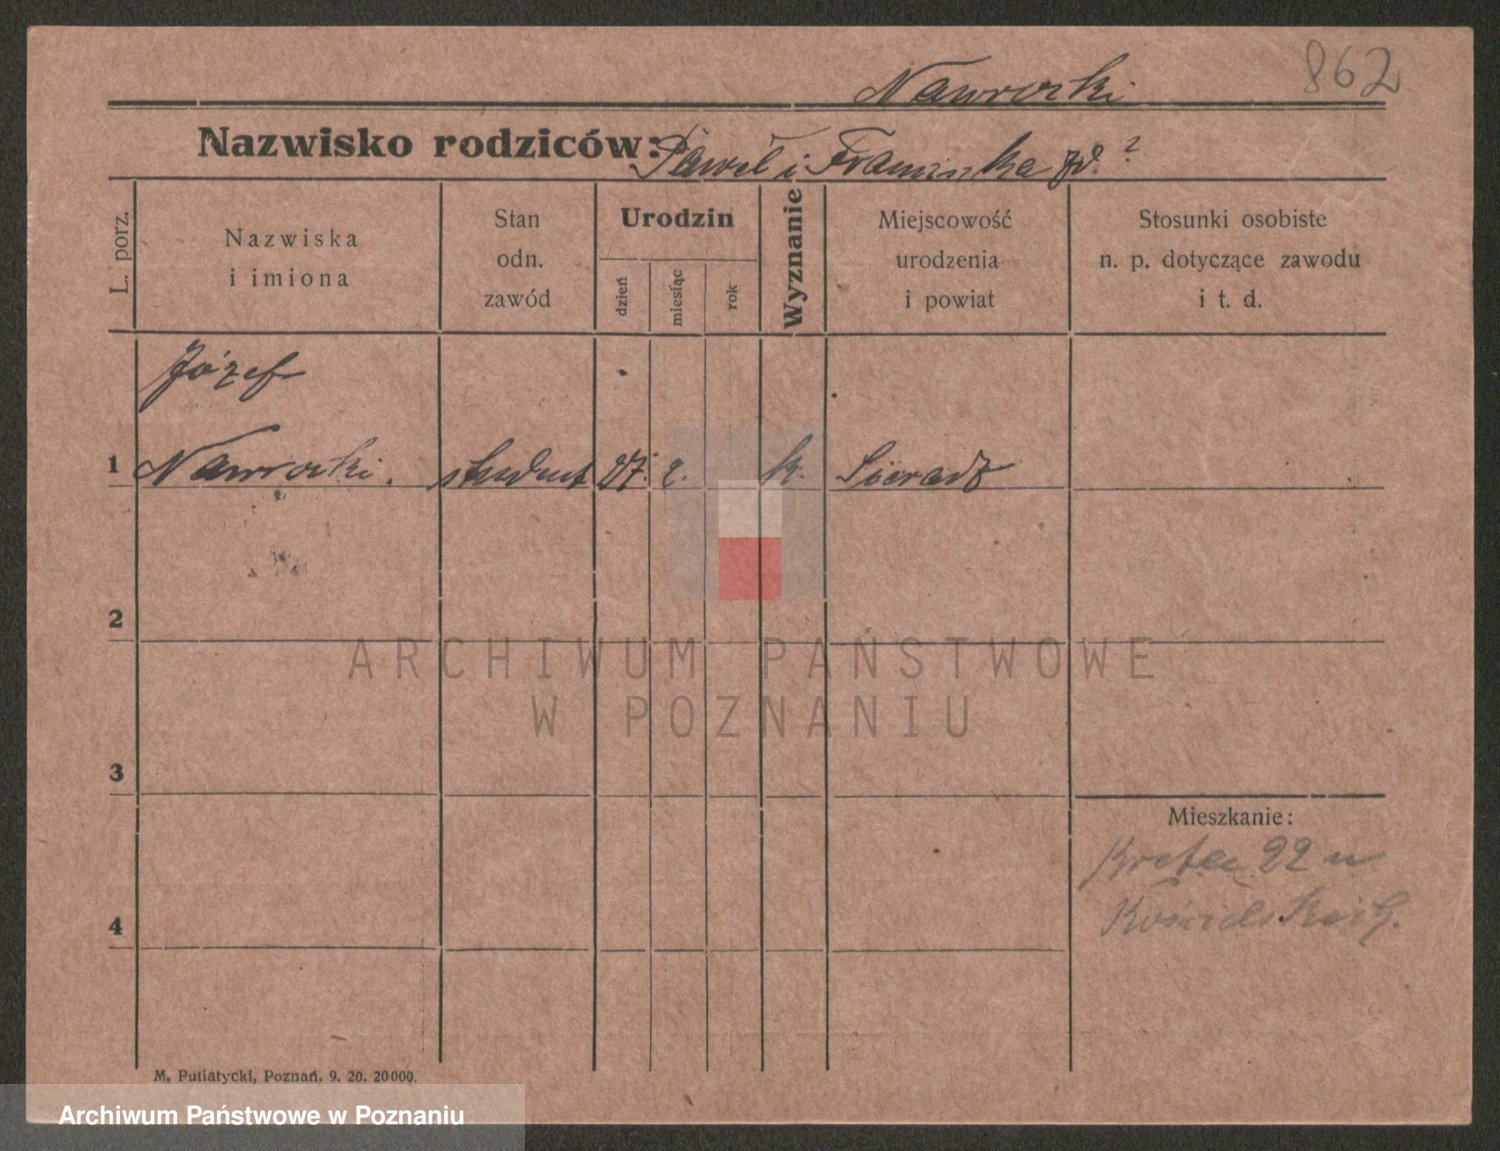 862
Nawrocki
Nazwisko rodziców: Paweł i Franciszka zd. ?
L. porz.
Nazwiska
i imiona
Stan
odn.
zawód
Urodzin
dzień
miesiąc
rok
Wyznanie
Miejscowość
urodzenia
i powiat
Stosunki osobiste
n. p. dotyczące zawodu
i t. d.
Józef
1 Nawrocki. student 27. 2. k. Sieradz
2
ARCHIWUM PAŃSTWOWE
W POZNANIU
3
Mieszkanie:
22 u
4
M. Putiatycki, Poznań. 9. 20. 20000.
Archiwum Państwowe w Poznaniu